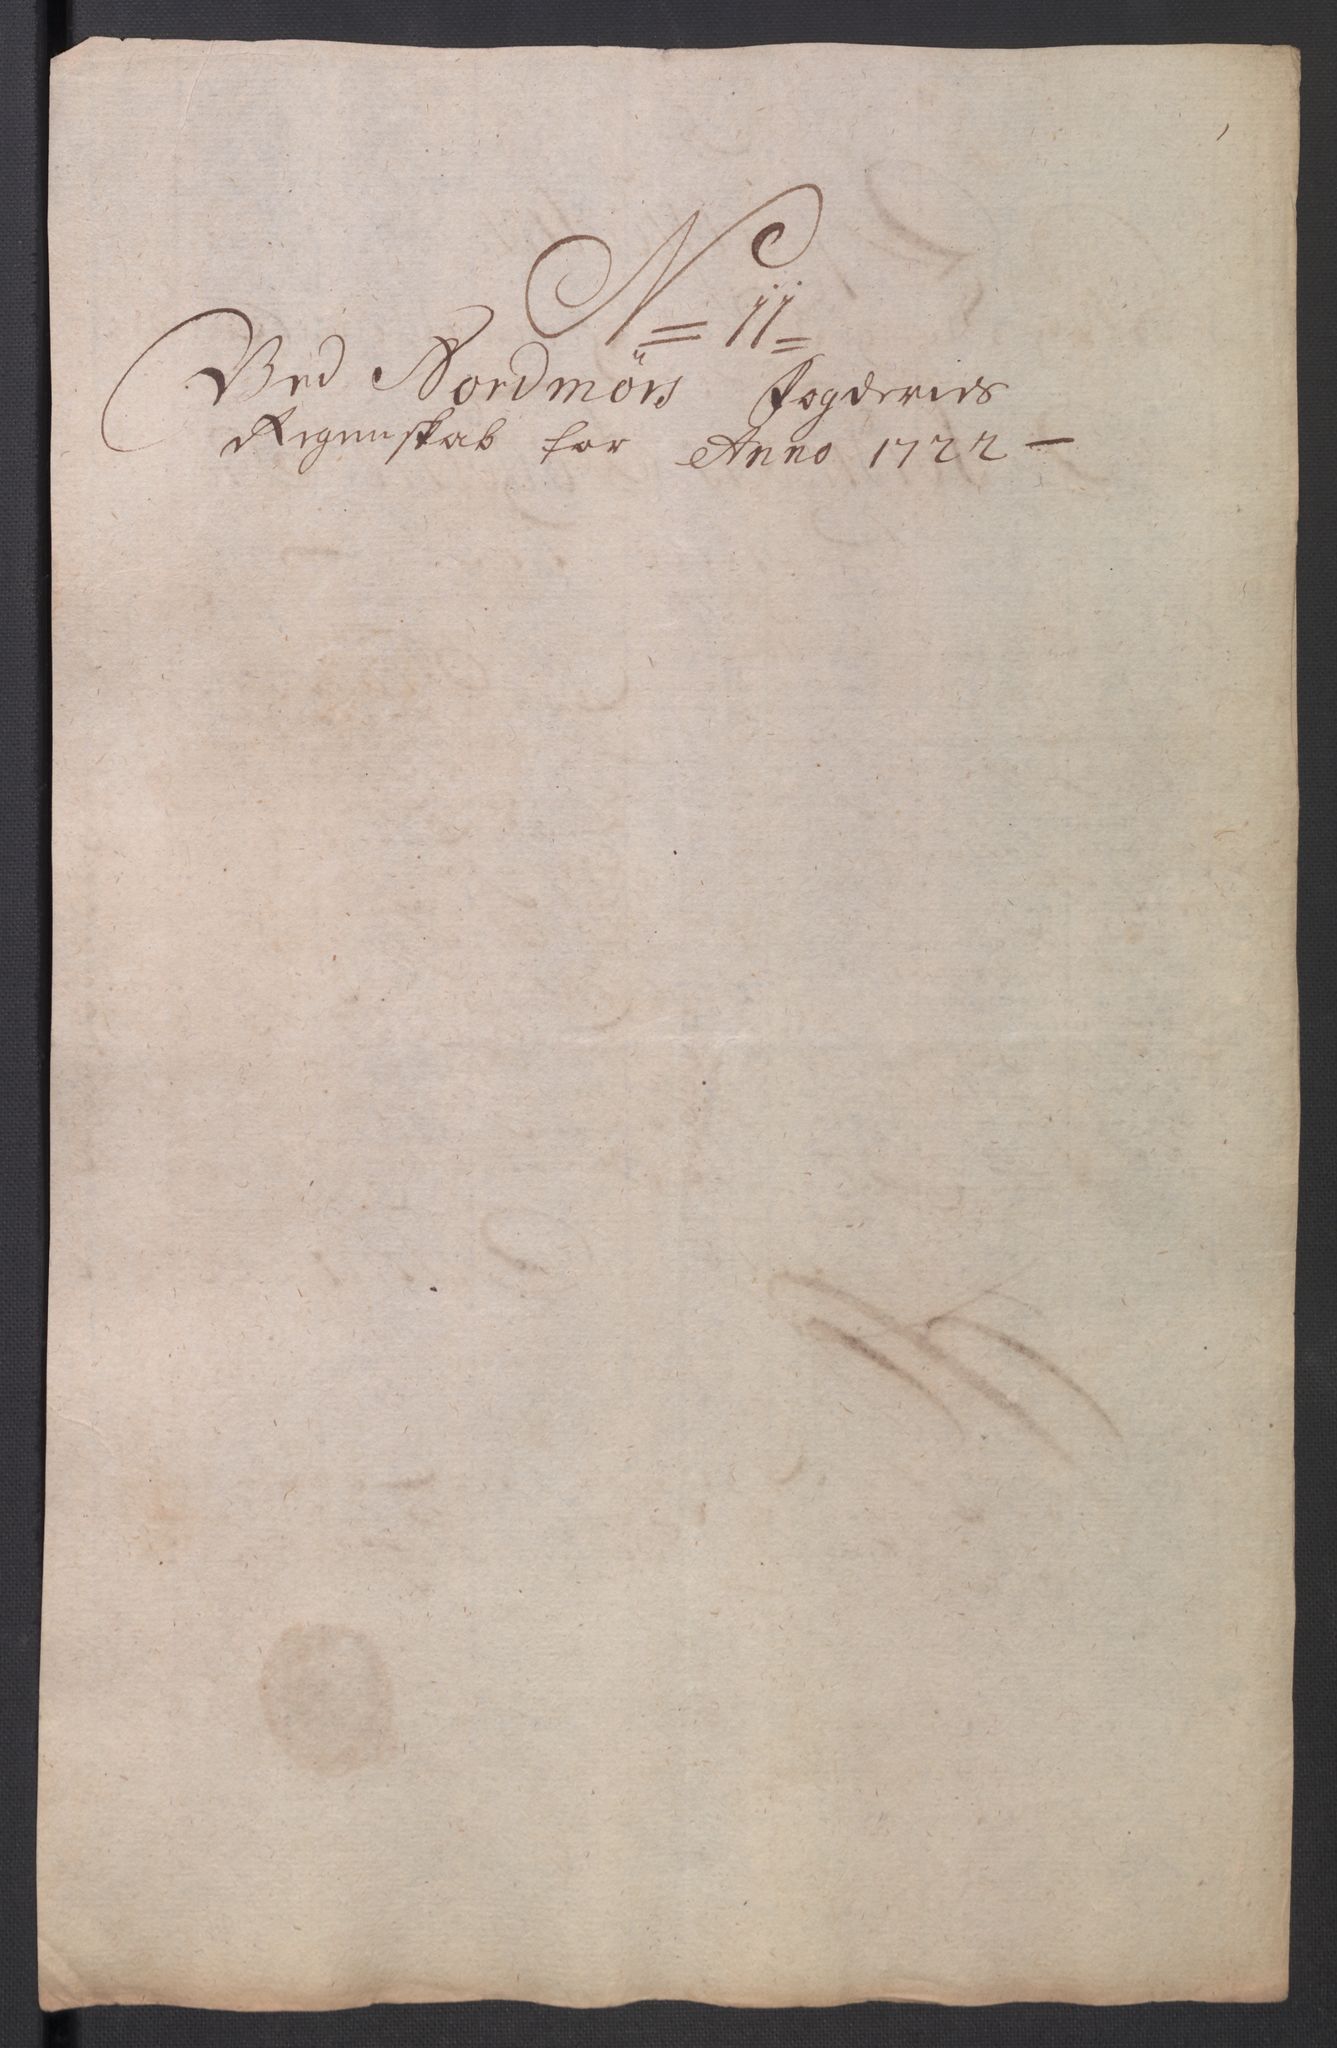 No 11
Ved Nordmörs Fogderies
Regenskab for Anno 1722